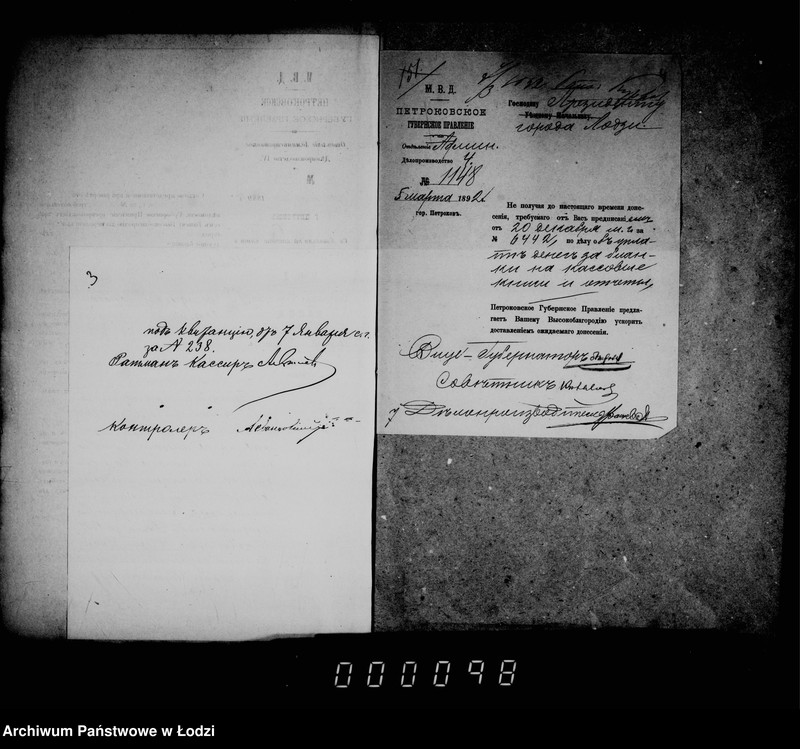 3
подъ квитанцію отъ 7 Января с.г.
за № 238.
Ратманъ Кассиръ
Контролеръ
151/
М. В. Д.
ПЕТРОКОВСКОЕ
ГУБЕРНСКОЕ ПРАВЛЕНІЕ
Отдѣленіе Админ.
Дѣлопроизводство 4.
№ 1148
5 марта 1892
гор. Петроковъ.
Господину Президенту
Уѣздному Начальнику
города Лодзи.
Не получая до настоящаго времени доне-
сенія, требуемаго отъ Васъ предписаніемъ
отъ 20 декабря м. г. за
№ 6442, по дѣлу объ упла-
тѣ денегъ за блан-
ки на кассовые
книги и отчеты,
Петроковское Губернское Правленіе предла-
гаетъ Вашему Высокоблагородію ускорить
доставленіемъ ожидаемаго донесенія.
Вице-Губернаторъ
Совѣтникъ
Дѣлопроизводитель
000098
Archiwum Państwowe w Łodzi